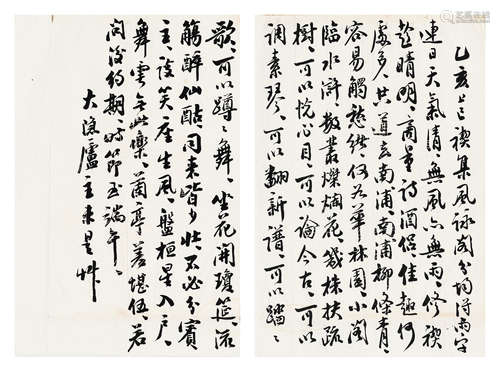 乙亥上巳禊集風詠閣分均得雨字
連日天氣清、無風亦無雨、修禊
趁晴明、商量詩酒侶、佳趣何
處多、共道去南浦、南浦柳條青、
容易觸愁緒、何若華林園、小閣
臨水滸、數叢燦爛花、幾株扶疏
樹、可以悅心目、可以論今古、可以
調素琴、可以翻新譜、可以踏〻
歌、可以蹲〻舞、坐花開瓊筵、流
觴醉仙酤、同來皆少壯、不必分賓
主、談笑座生風、盤桓星入戶、
舞雩無此樂、蘭亭差堪伍、若
問後約期、時節至端午、
大隱廬主是艸